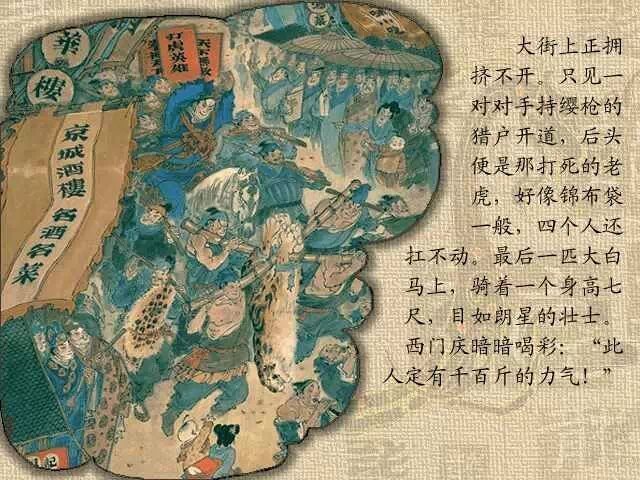 大街上正拥
挤不开。只见一
对对手持缨枪的
猎户开道，后头
便是那打死的老
虎，好像锦布袋
一般，四个人还
扛不动。最后一匹大白
马上，骑着一个身高七
尺，目如朗星的壮士。
西门庆暗暗喝彩：“此
人定有千百斤的力气！”
打虎英雄
楼
京城酒楼
名酒名菜